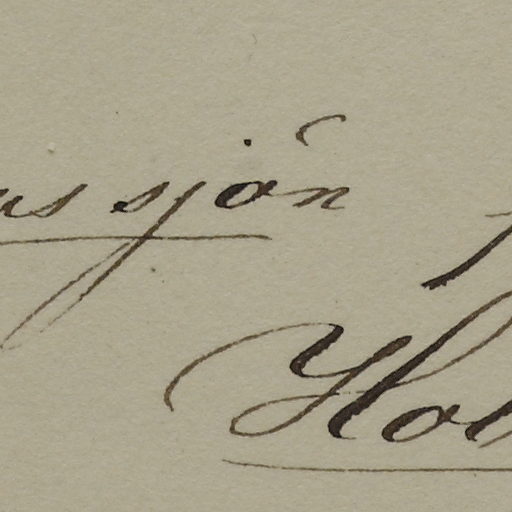 us sjön
Hol